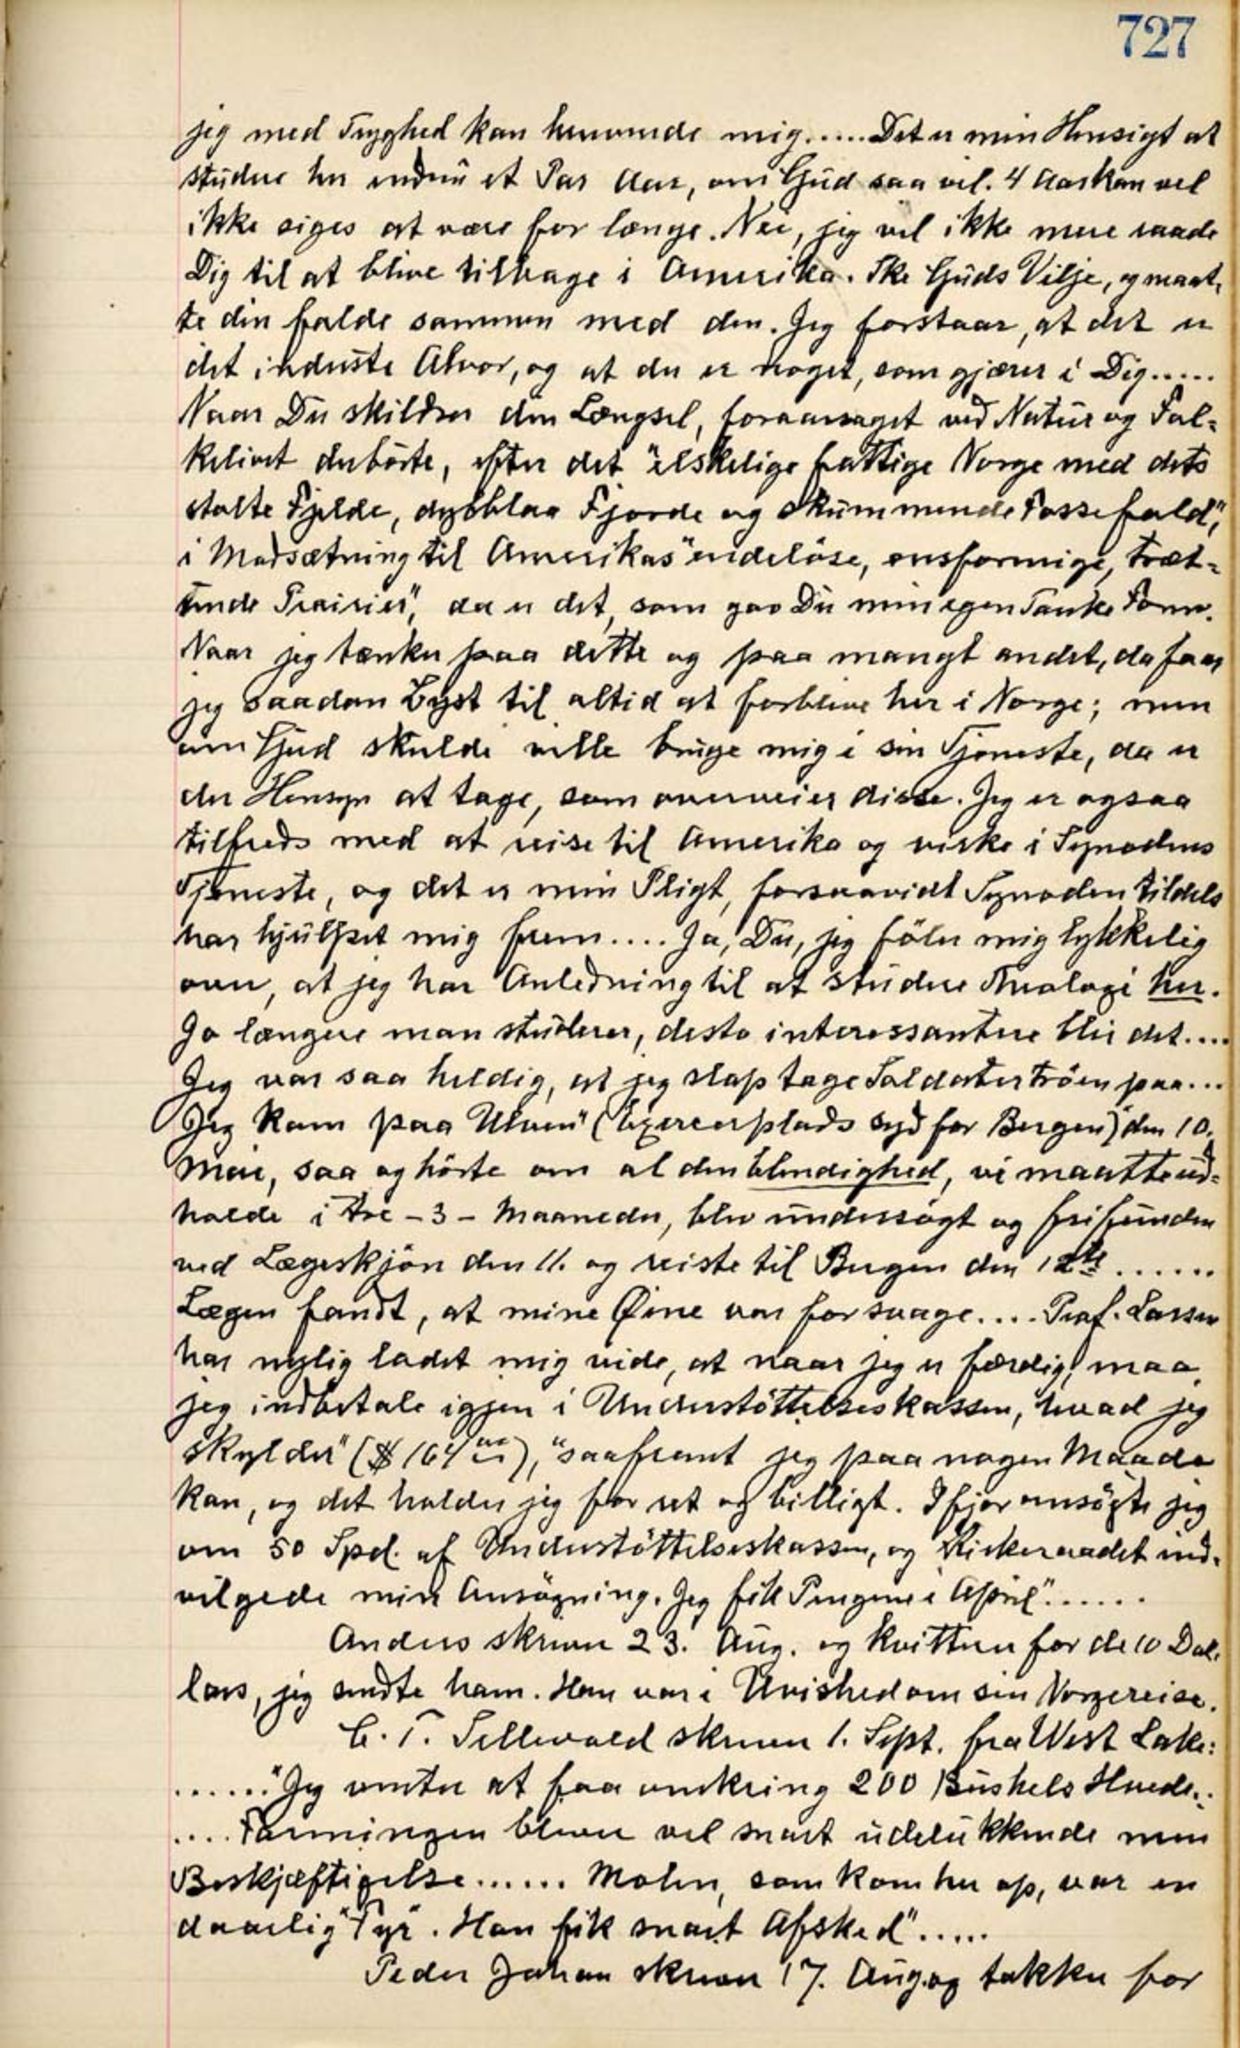 727
jeg med Tryghed kan henvende mig..... Det er min Hensigt at
studere her endnu et Par Aar, om Gud saa vil. 4 Aar kan vel
ikke siges at være for længe. Nei, jeg vil ikke mere raade
Dig til at blive tilbage i Amerika. Ske Guds Vilje, og maat-
te din falde sammen med den. Jeg forstaar, at det er
det inderste Alvor, og at der er noget, som gjærer i Dig.....
Naar Du skildrer din Længsel, foraarsaget ved Natur og Fol-
kelivet derborte, efter det "elskelige fattige Norge med dets
stolte Fjelde, dybblaa Fjorde og skummende Fossefald",
i Modsætning til Amerikas "endeløse, ensformige, træt-
tende Prairier", da er det, som gav Du min egen Tanke Form.
Naar jeg tænker paa dette og paa mangt andet, da faar
jeg saadan Lyst til altid at forblive her i Norge; men
om Gud skulde ville bruge mig i sin Tjeneste, da er
der Hensyn at tage, som overveier disse. Jeg er ogsaa
tilfreds med at reise til Amerika og virke i Synodens
Tjeneste, og det er min Pligt, forsaavidt Synoden tildels
har hjulpet mig frem.... Ja, Du, jeg föler mig lykkelig
over, at jeg har Anledning til at studere Theologi her.
Jo længere man studerer, desto interessantere blir det....
Jeg var saa heldig, at jeg slap tage Soldatertröien paa...
Jeg kom paa Ulven" (Exercerplads syd for Bergen) "den 10.
Mai, saa og hörte om al den Elendighed, vi maatte ud-
holde i tre - 3 - Maaneder, blev undersögt og frifunden
ved Lægeskjön den 11. og reiste til Bergen den 12te......
Lægen fandt, at mine Øine var for svage.... Prof. Larsen
har nylig ladet mig vide, at naar jeg er færdig, maa
jeg indbetale igjen i Understöttelseskassen, hvad jeg
skylder" ($164), "saafremt jeg paa nogen Maade
kan, og det holder jeg for ret og billigt. Ifjor ansögte jeg
om 50 Spd. af Understöttelseskassen, og Kirkeraadet ind-
vilgede min Ansögning. Jeg fik Pengene i April"......
Anders skriver 23. Aug. og kvitterer for de 10 Dol-
lars, jeg sendte ham. Han var i Uvished om sin Norgereise.
C. T. Sellevold skriver 1. Sept. fra West Lake:
......"Jeg venter at faa omkring 200 Bushels Hvede..
....Farmingen bliver vel snart udelukkende min
Beskjæftigelse...... Molen, som kom her op, var en
daarlig "Fyr". Han fik snart Afsked".....
Peder Johan skriver 17. Aug. og takker for